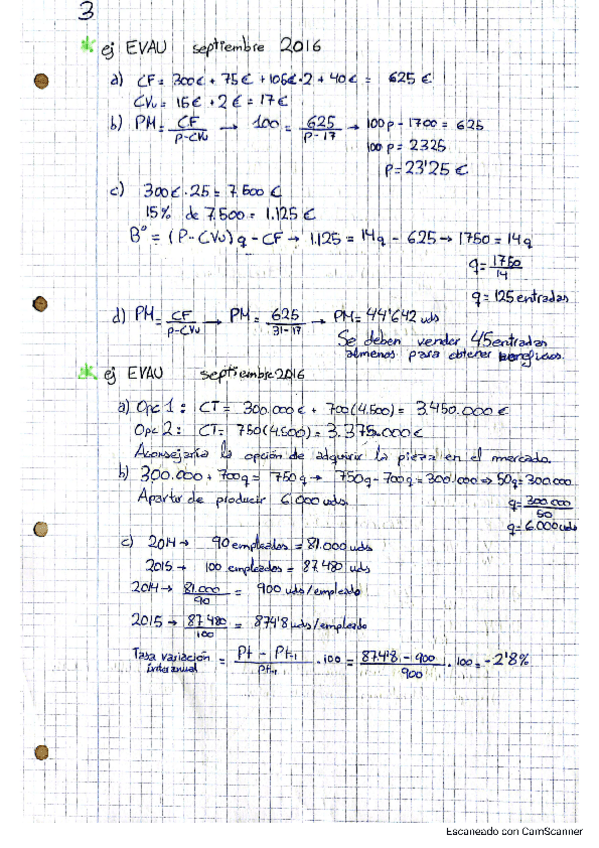 3
* ej EVAU septiembre 2016
a) CF = 300€ + 75€ + 105€·2 + 40€ = 625 €
CVu = 15€ + 2€ = 17€
b) PM = CF / P-CVu → 100 = 625 / P-17 → 100p - 1700 = 625
100 p = 2325
p = 23'25 €
c) 300€·25 = 7.500€
15% de 7.500 = 1.125 €
Bº = (P - CVu) q - CF → 1.125 = 14q - 625 → 1750 = 14q
q = 1750 / 14
q = 125 entradas
d) PM = CF / P-CVu → PM = 625 / 31-17 → PM = 44'642 uds
Se deben vender 45 entradas
almenos para obtener beneficios.
* ej EVAU septiembre 2016
a) Opc 1: CT = 300.000€ + 700(4.500) = 3.450.000€
Opc 2: CT = 750(4.500) = 3.375.000€
Aconsejaría la opción de adquirir la pieza en el mercado.
b) 300.000 + 700q = 750q → 750q - 700q = 300.000 ⇒ 50q = 300.000
Apartir de producir 6.000 uds.
q = 300.000 / 50
q = 6.000 uds
c) 2014 → 90 empleados = 81.000 uds
2015 → 100 empleados = 87.480 uds
2014 → 81.000 / 90 = 900 uds/empleado
2015 → 87.480 / 100 = 874'8 uds/empleado
Tasa variación interanual = Pt - Pt-1 / Pt-1 · 100 = 874'8 - 900 / 900 · 100 = -2'8%
Escaneado con CamScanner